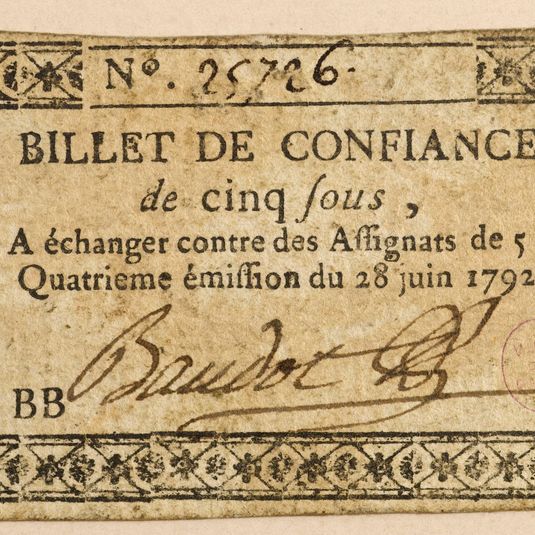 Nº. 25726.
BILLET DE CONFIANCE
de cinq ſous,
A échanger contre des Aſſignats de 5
Quatrieme émiſſion du 28 juin 1792
Baudot
BB